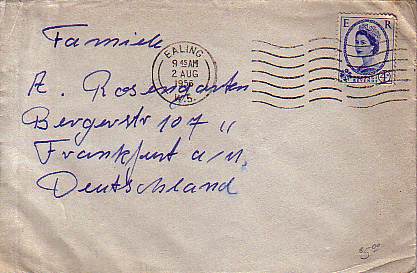 Familie
A. Rosengarten
Bergerstr 107 II
Frankfurt a/M.
Deutschland
EALING
9 45 AM
2 AUG
1956
W.5.
E R